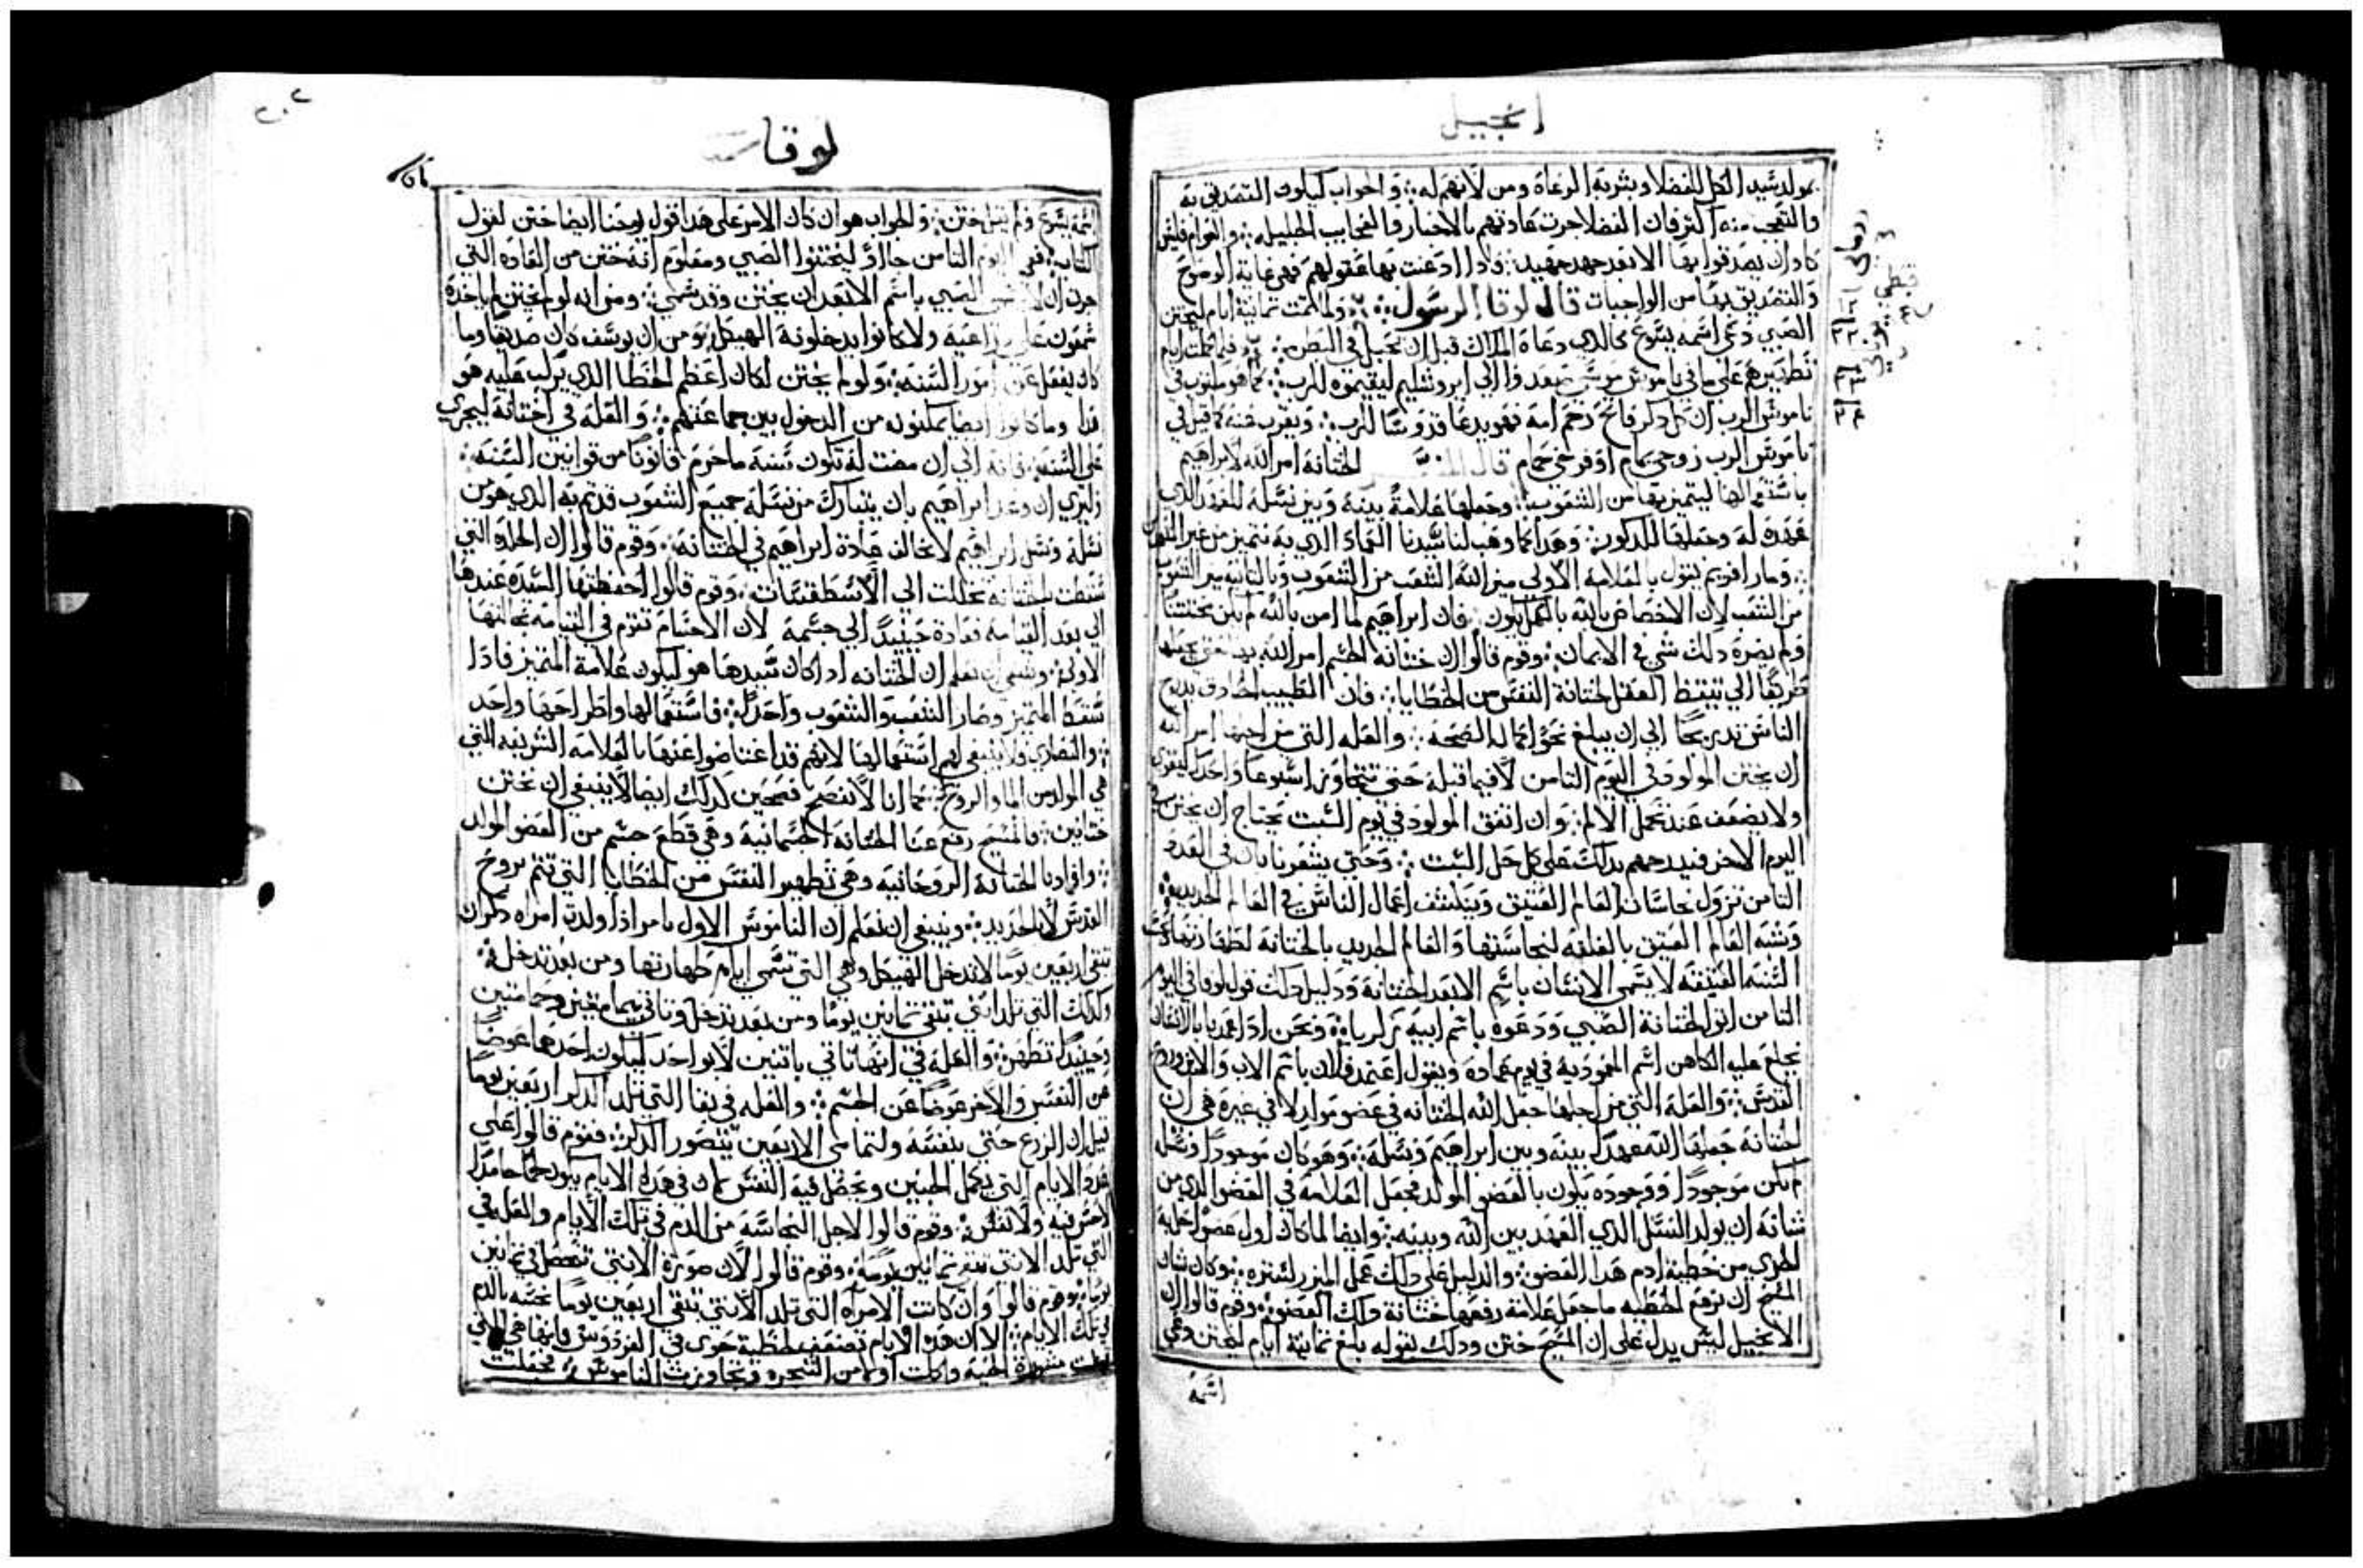 انجيل
بمولد سيد الكل للفضلا وبشر به الرعاة ومن لا يفهم له ؞ والجواب ليكون التصديق به
والتعجب منه اكثر فان الفضلا جرت عادتهم بالاخبار والعجايب الجليله ؞ والعوام فليس
كادان يصدقوا بها الا بعد جهد جهيد ؞ فاذا ادعنت بها عقولهم فهو غاية الوضوح
والتصديق بها من الواجبات قال لوقا الرسول ؞ ولما تمت تمانية ايام ليختتن
الصبي دعي اسمه يسوع كالدي دعاه الملاك قبل ان تحبل في البطن ؞ فلما كملت ايام
تطهيرهم على ما في ناموس موسى صعدوا الي ايروشليم ليقيموه للرب ؞ كما هو مكتوب في
ناموس الرب ان كل دكر فاتح رحم امه فهو يدعا قدوسا للرب ؞ ويقرب عنه كما قيل في
ناموس الرب زوجي يمام او فرخي حمام قال المفسر الختانة امر الله لابراهيم
باستعمالها ليتميز بها من الشعوب ؞ وجعلها علامة بينه وبين نسله للعهد الدي
عهده له وجعلها للدكور ؞ وهدا كما وهب لنا سيدنا العماد الدي به نتميز من غير
؞ ومار افريم يقول بالعلامة الاولى ميز الله الشعب من الشعوب وبالتانيه ميز الشعوب
من الشعب لان الاخصاص بالله بالكمال يكون ؞ فان ابراهيم لما امن بالله لم يكن مختتنا
ولم يضره دلك شي في الايمان ؞ وقوم قالوا ان ختانة الجسم امر الله بها حتي يجعلها
طريقا الي تيقظ العقل لختانة النفس من الخطايا ؞ فان الطبيب الحادق يدرج
الناس تدريجا الي ان يبلغ نحو اكمال الصحة ؞ والعله التي من اجلها امر الله
ان يختن المولود في اليوم التامن لا فيما قبله حتي تتجاوز اسبوعا واحدا ليقوي
ولا يضعف عند تحمل الالم ؞ وان اتفق المولود في يوم السبت يحتاج ان يختن في
اليوم الاخر فيدرجهم بدلك على كل حل السبت ؞ وحتي يشعرنا بان في العدد
التامن تزول نجاسات العالم العتيق وينكشف اعمال الناس في العالم الجديد ؞
وشبه العالم العتيق بالغلفه لنجاستها والعالم الجديد بالختانة لطهارتها
السنة العتيقه لا يسمى الانسان باسم الا بعد الختانة ودليل دلك قول لوقا في اليوم
التامن اتوا لختانة الصبي ودعوه باسم ابيه زكريا ؞ ونحن ادا اعمدنا بالاتفاق
يجلع عليه الكاهن اسم المعموديه في يوم عماده ويقول اعتمد فلان باسم الاب والابن وروح
القدس ؞ والعلة التي من اجلها جعل الله الختانه في عضو مولد لا في غيره هي ان
الختانة جعلها الله عهدا بينه وبين ابراهيم ونسله ؞ وهو كان موجودا ونسله
لم يكن موجودا ووجوده يكون بالعضو المولد فجعل العلامة في العضو الدي من
شانه ان يولد النسل الدي العهد بين الله وبينه ؞ وايضا لما كان اول عضو
الخزي من خطية ادم هدا العضو ؞ والدليل على دلك عمل الميزر لستره ؞ وكان شان
المسيح ان يرفع الخطيه ما جعل علامة رفعها ختانة دلك العضو ؞ وقوم قالوا ان
الانجيل ليس يدل على ان المسيح ختن ودلك لقوله بلغ تمانية ايام ليختن ودعي
اسمه
قبطي
رومي
٢٢
٢٣
٢٤
٢٠٢
لوقا
اسمه يسوع ولم يقل ختن ؞ والجواب هو ان كان الامر على هدا قول يوحنا ايضا ختن لقول
الكتاب في اليوم التامن جاؤ ليختنوا الصبي ومعلوم انه ختن من العاده التي
جرت ان لا يسمى الصبي باسم الا بعد ان يختن وقد سمي ؞ ومن انه لو لم يختن لم ياخده
شمعون على دراعيه ولا كانوا يدخلونه الهيكل ؞ ومن ان يوسف كان صديقا وما
كان يفعل غير امور السنة ؞ ولو لم يختن لكان اعظم الخطا الدي يركب عليه هو
هدا وما كانوا ايضا يمكنونه من الدخول بين جماعتهم ؞ والعلة في اختتانه ليجري
على السنة ؞ فانه الي ان مضت له تلتون سنة ما خرم قانونا من قوانين السنة ؞
وليري ان وعد ابراهيم بان يتبارك من نسله جميع الشعوب قد تم به الدي هو من
نسله ونسل ابراهيم لا يخالف عادة ابراهيم في الختانة ؞ وقوم قالوا ان الجلدة التي
سقطت بالختانه تحللت الي الاسطقسات ؞ وقوم قالوا حفظتها السيدة عندها
الي بعد القيامة فعادة حينيد الي جسمه لان الاجسام تقوم في القيامة بحالتها
الاولى ؞ وينبغي ان نعلم ان الختانه اد اكان سببها هو ليكون علامة المتميز فادا
سقط المتميز وصار الشعب والشعوب واحدا ؞ فاستعمالها واطراحها واحد
؞ والنصاري فلا ينبغي لهم استعمالها لانهم قد اعتاضوا عنها بالعلامة الشريفه التي
هي المولد من الما والروح ؞ كما انا لا نفصح فصحين كدلك ايضا لا ينبغي ان نختن
ختانين ؞ فالمسيح رفع عنا الختانة الجسمانية وهي قطع جسم من العضو المولد
؞ وافادنا الختانة الروحانيه وهي تطهير النفس من الخطايا التي تتم بروح
القدس لا بالحديد ؞ وينبغي ان نعلم ان الناموس الاول يامر ادا ولدت امراه دكرا ان
تبقي اربعين يوما لا تدخل الهيكل وهي التي تسمى ايام طهارتها ومن بعد تدخل ؞
وكدلك التي تلد انثي تبقي تمانين يوما ومن بعد تدخل وتاتي بيمامتين وحمامتين
وحينيد تطهر ؞ والعلة في انها تاتي باتنين لا بواحد ليكون احدهما عوضا
عن النفس والاخر عوضا عن الجسم ؞ والعله في بقا التي تلد الدكر اربعين يوما
قيل ان الزرع حتي ينفسه ولتمامى الاربعين يتصور الدكر ؞ فقوم قالوا على
عدد الايام التي يكمل الجنين وتحصل فيه النفس لان في هده الايام يكون لحما جامدا
لا حس فيه ولا نفس ؞ وقوم قالوا لاجل النجاسة من الدم في تلك الايام والعله في
التي تلد الانثي تبقي تمانين يوما ؞ وقوم قالوا لان صورة الانثي تحصل في تمانين
يوما ؞ وقوم قالوا وان كانت الامراه التي تلد الانثي تبقي اربعين يوما نجسه بالدم
في تلك الايام ؞ الا ان هده الايام تضعف لخطية حوى في الفردوس فانها هي التي
قبلت مشورة الحيه واكلت اولا من الشجره وتجاوزت الناموس فجعلت